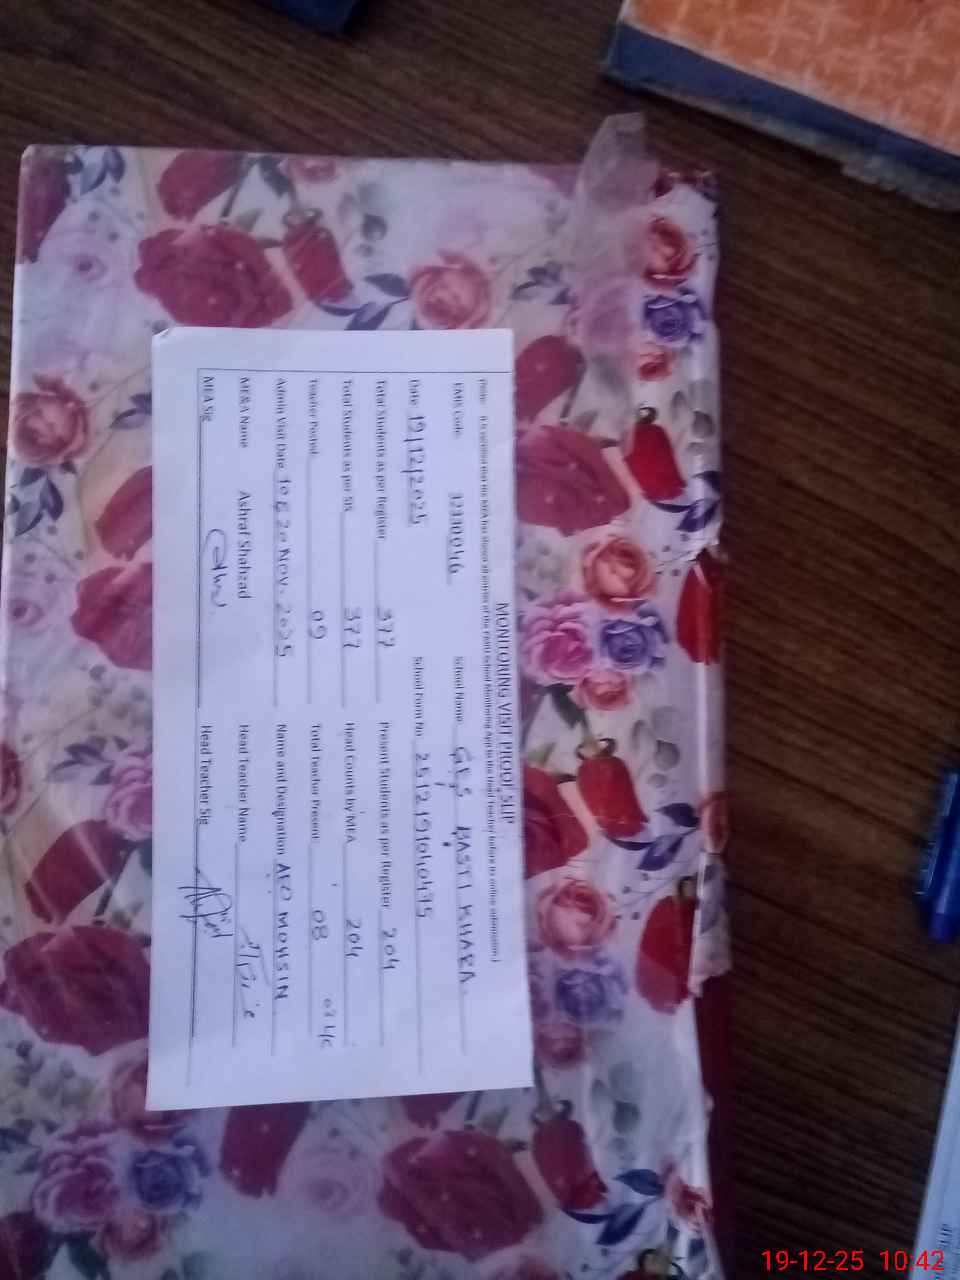 MONITORING VISIT PROOF SLIP
(Note: It is certified that the MEA has shown all entries of the PMIU School Monitoring App to the Head Teacher before its online submission)
EMIS Code 32330046 School Name GES BASTI KHAEA.
Date 19/12/2025 School Form No 2512191040475
Total Students as per Register 377 Present Students as per Register 204
Total Students as per SIS 377 Head Counts by MEA 204
Teacher Posted: 09 Total Teacher Present: 08
Admin Visit Date 10 & 20 NOV. 2025 Name and Designation AEO MOHSIN
MEA Name Ashraf Shahzad Head Teacher Name
MEA Sig Head Teacher Sig
SLIP
19-12-25 10:42